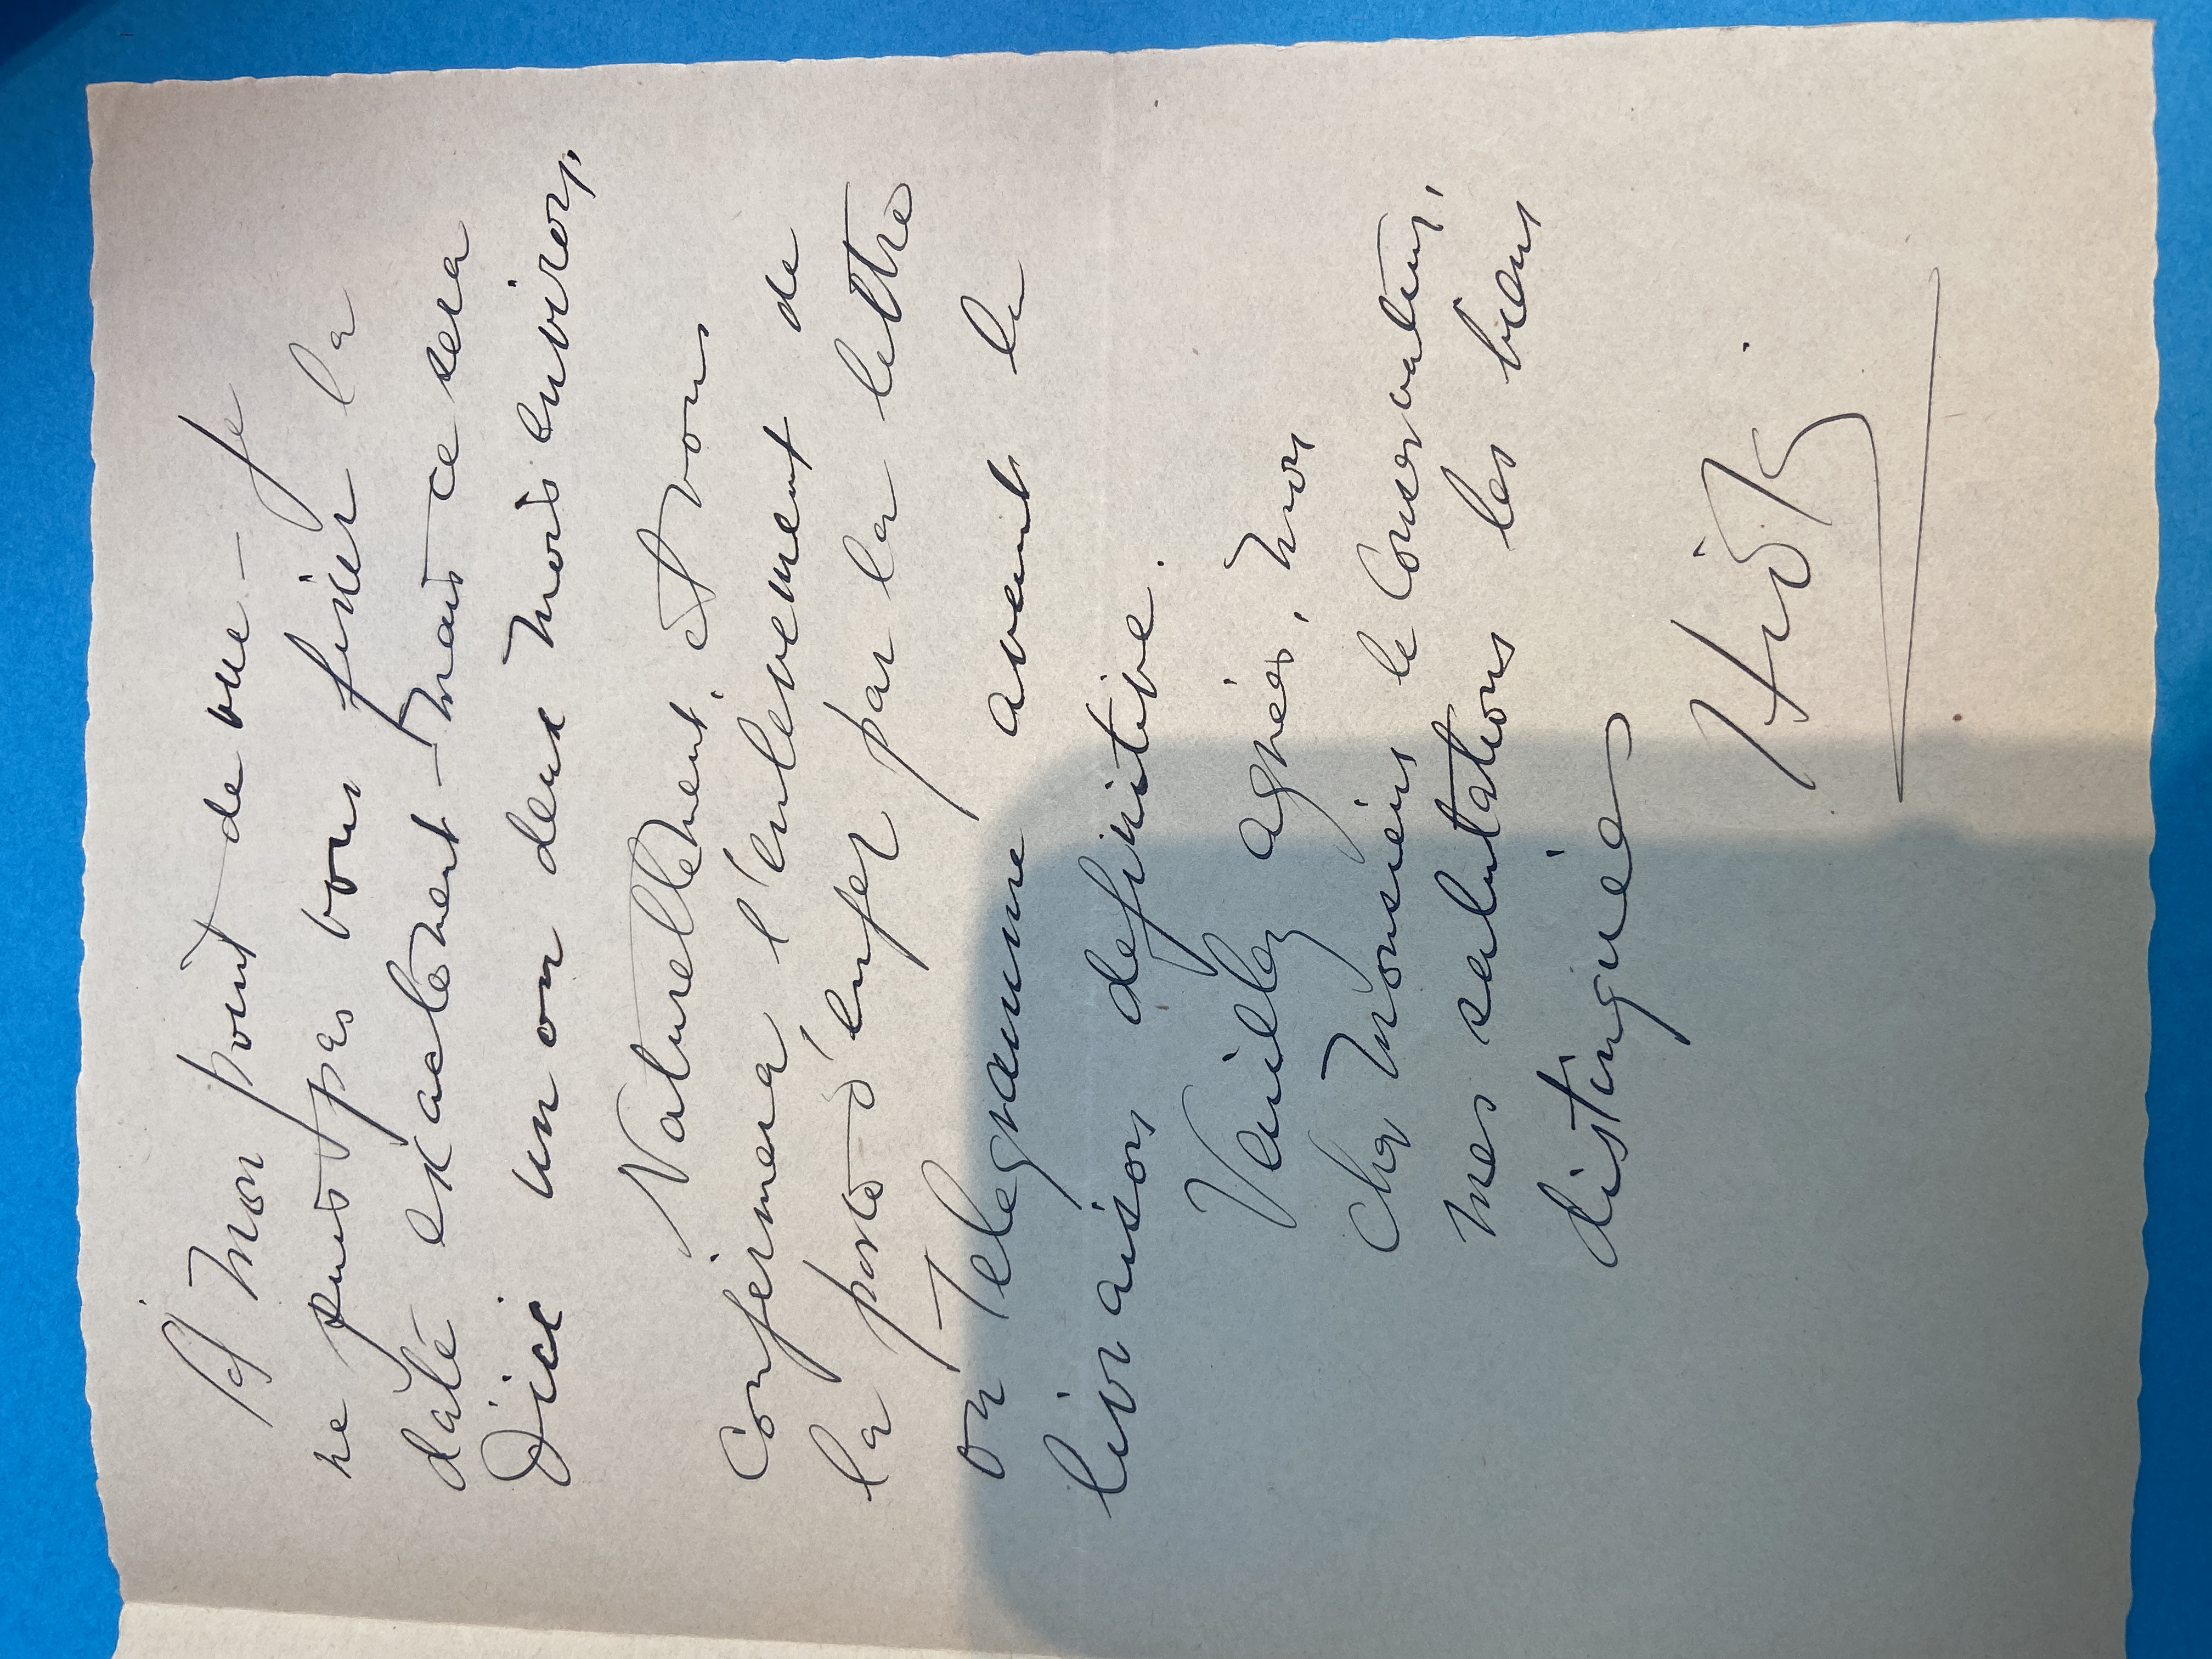 A mon point de vue – Je
ne puis pas vous fixer la
date exactement – mais ce sera
d'ici un ou deux mois environ,
Naturellement, et vous
confirmera l'enlevement de
la porte d'enfer par la lettre
ou Telegramme avant le
livraison definitive.
Veuillez agréer, mon
cher Monsieur le Conservateur,
mes salutations les biens
distinguées